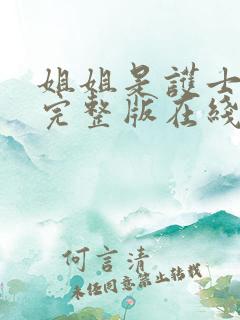 姐姐是護士
完整版在綫
何言清
未经同意禁止转载